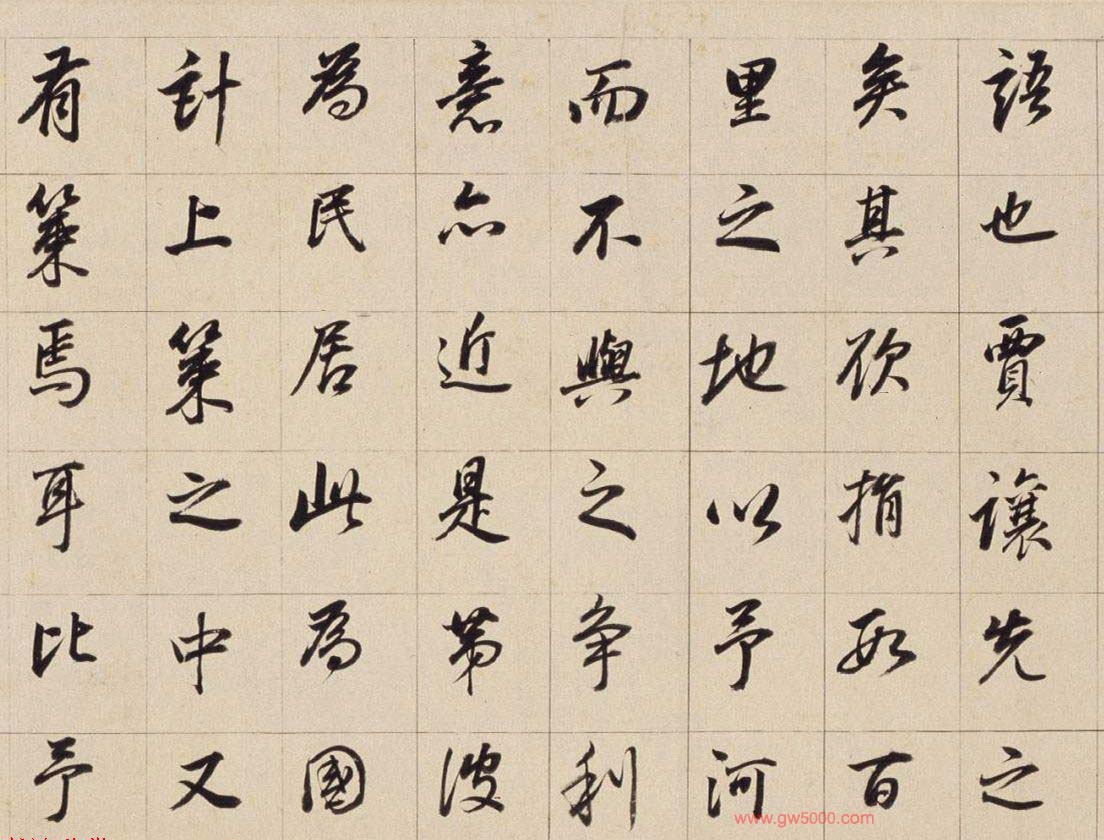 語也賈讓先之
矣其欲捐數百
里之地以予河
而不與之爭利
意亦近是第彼
為民居此為國
計上策之中又
有策焉耳比予
www.gw5000.com